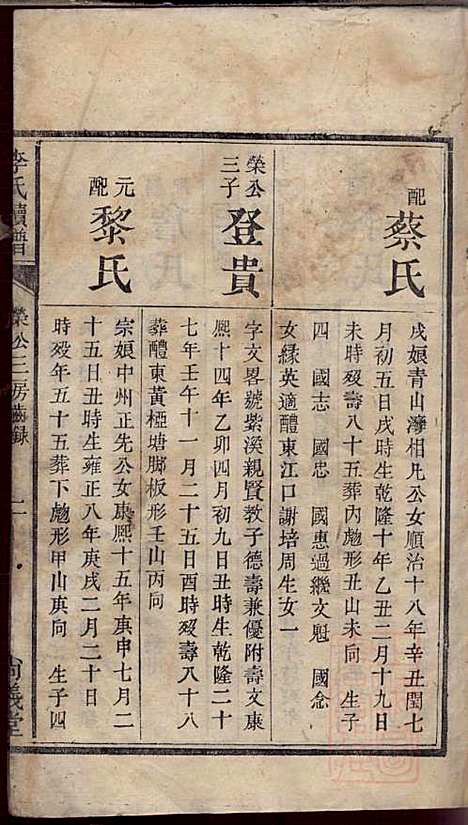 配
蔡氏
戌娘青山灣相凡公女順治十八年辛丑閏七
月初五日戌時生乾隆十年乙丑二月十九日
未時歿壽八十五葬內彪形丑山未向　生子
四　國志　國忠　國惠過繼文魁　國念
女緣英適醴東江口謝培周生女一
榮公
三子
登貴
字文畧號紫溪親賢教子德壽兼優附壽文康
熙十四年乙卯四月初九日丑時生乾隆二十
七年壬午十一月二十五日酉時歿壽八十八
葬醴東黃椏塘膨板形壬山丙向
元
配
黎氏
宗娘中州正先公女康熙十五年庚申七月二
十五日丑時生雍正八年庚戌二月二十日
時歿年五十五葬下彪形甲山庚向　生子四
李氏續譜
榮公三房齒錄
二
尚義堂